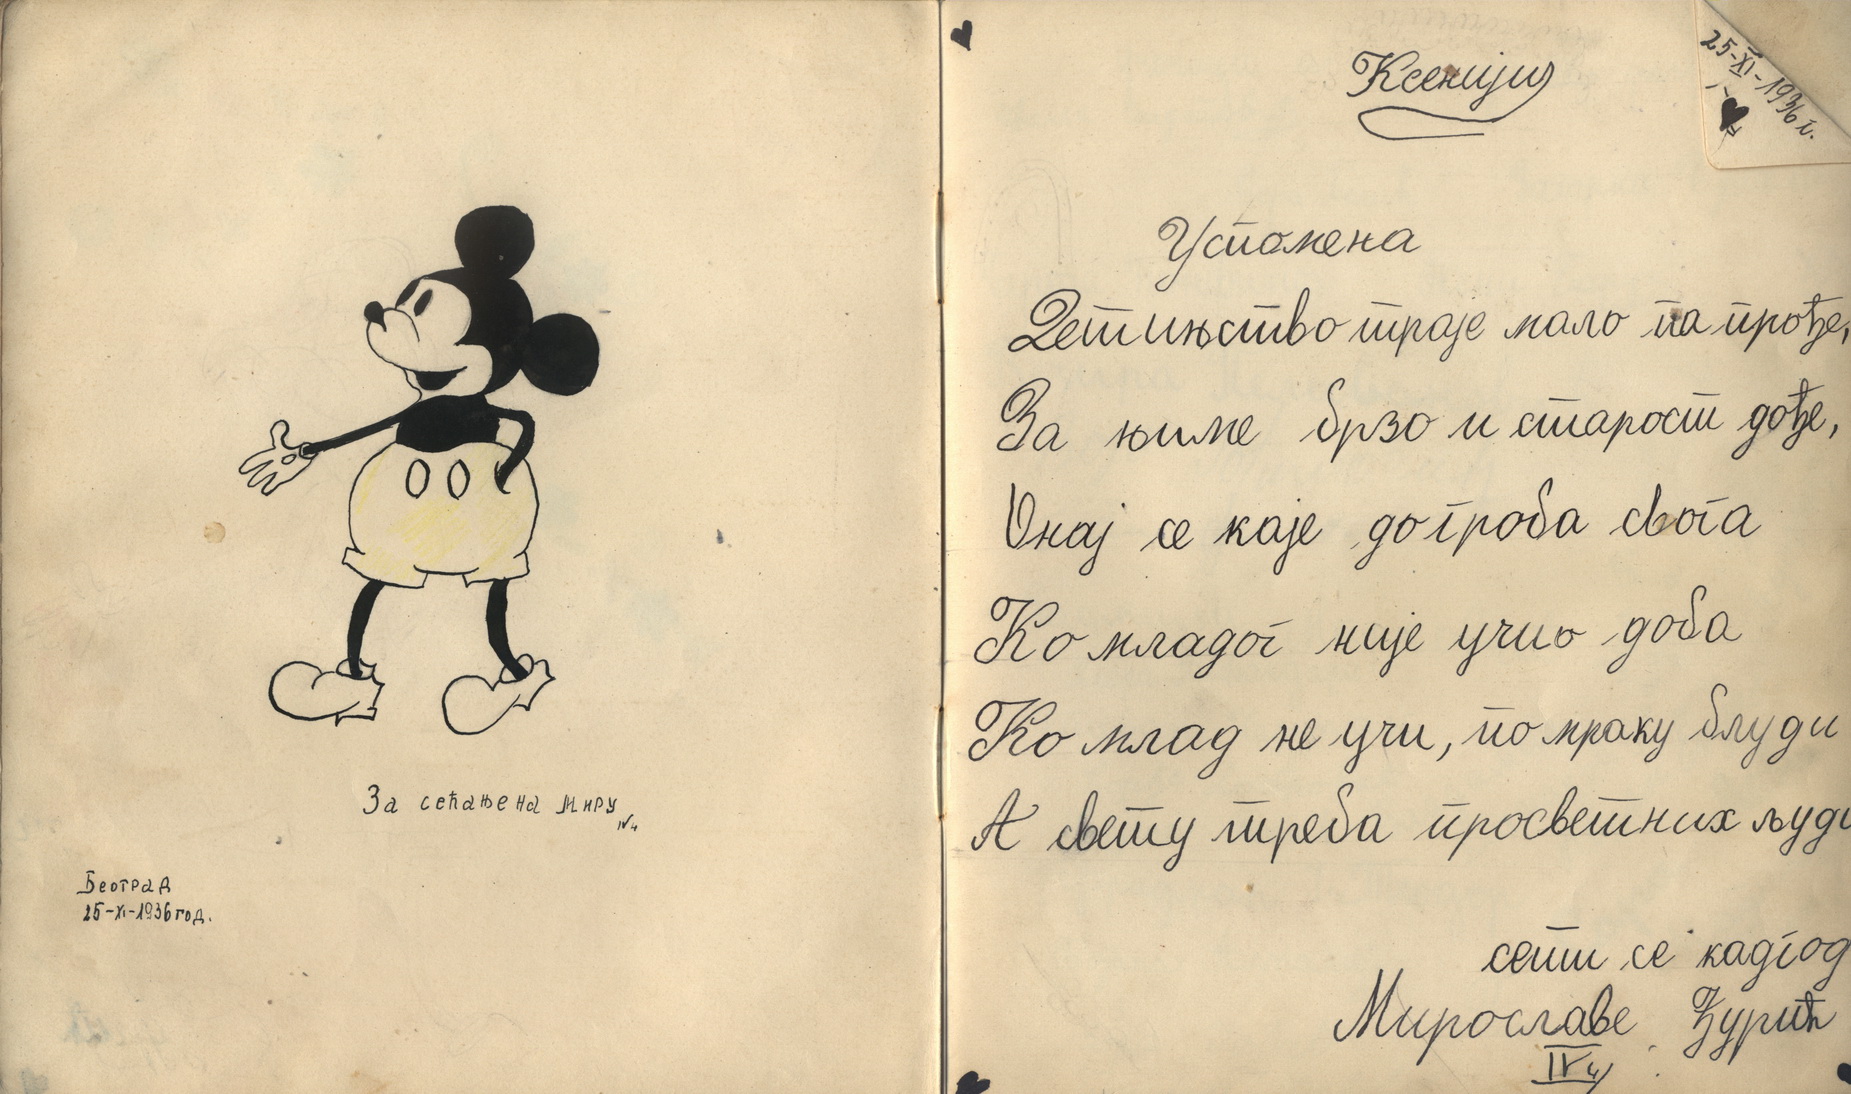 За сећање на Миру
IV4
Београд
25-XI-1936 год.
25-XI-1936 г.
Ксенији
Успомена
Детињство траје мало па прође,
За њиме брзо и старост дође,
Онај се каје до гроба свога
Ко младог није учио доба
Ко млад не учи, по мраку блуди
А свету треба просветних људи
сети се кадгод
Мирославе Ђурић
IV4